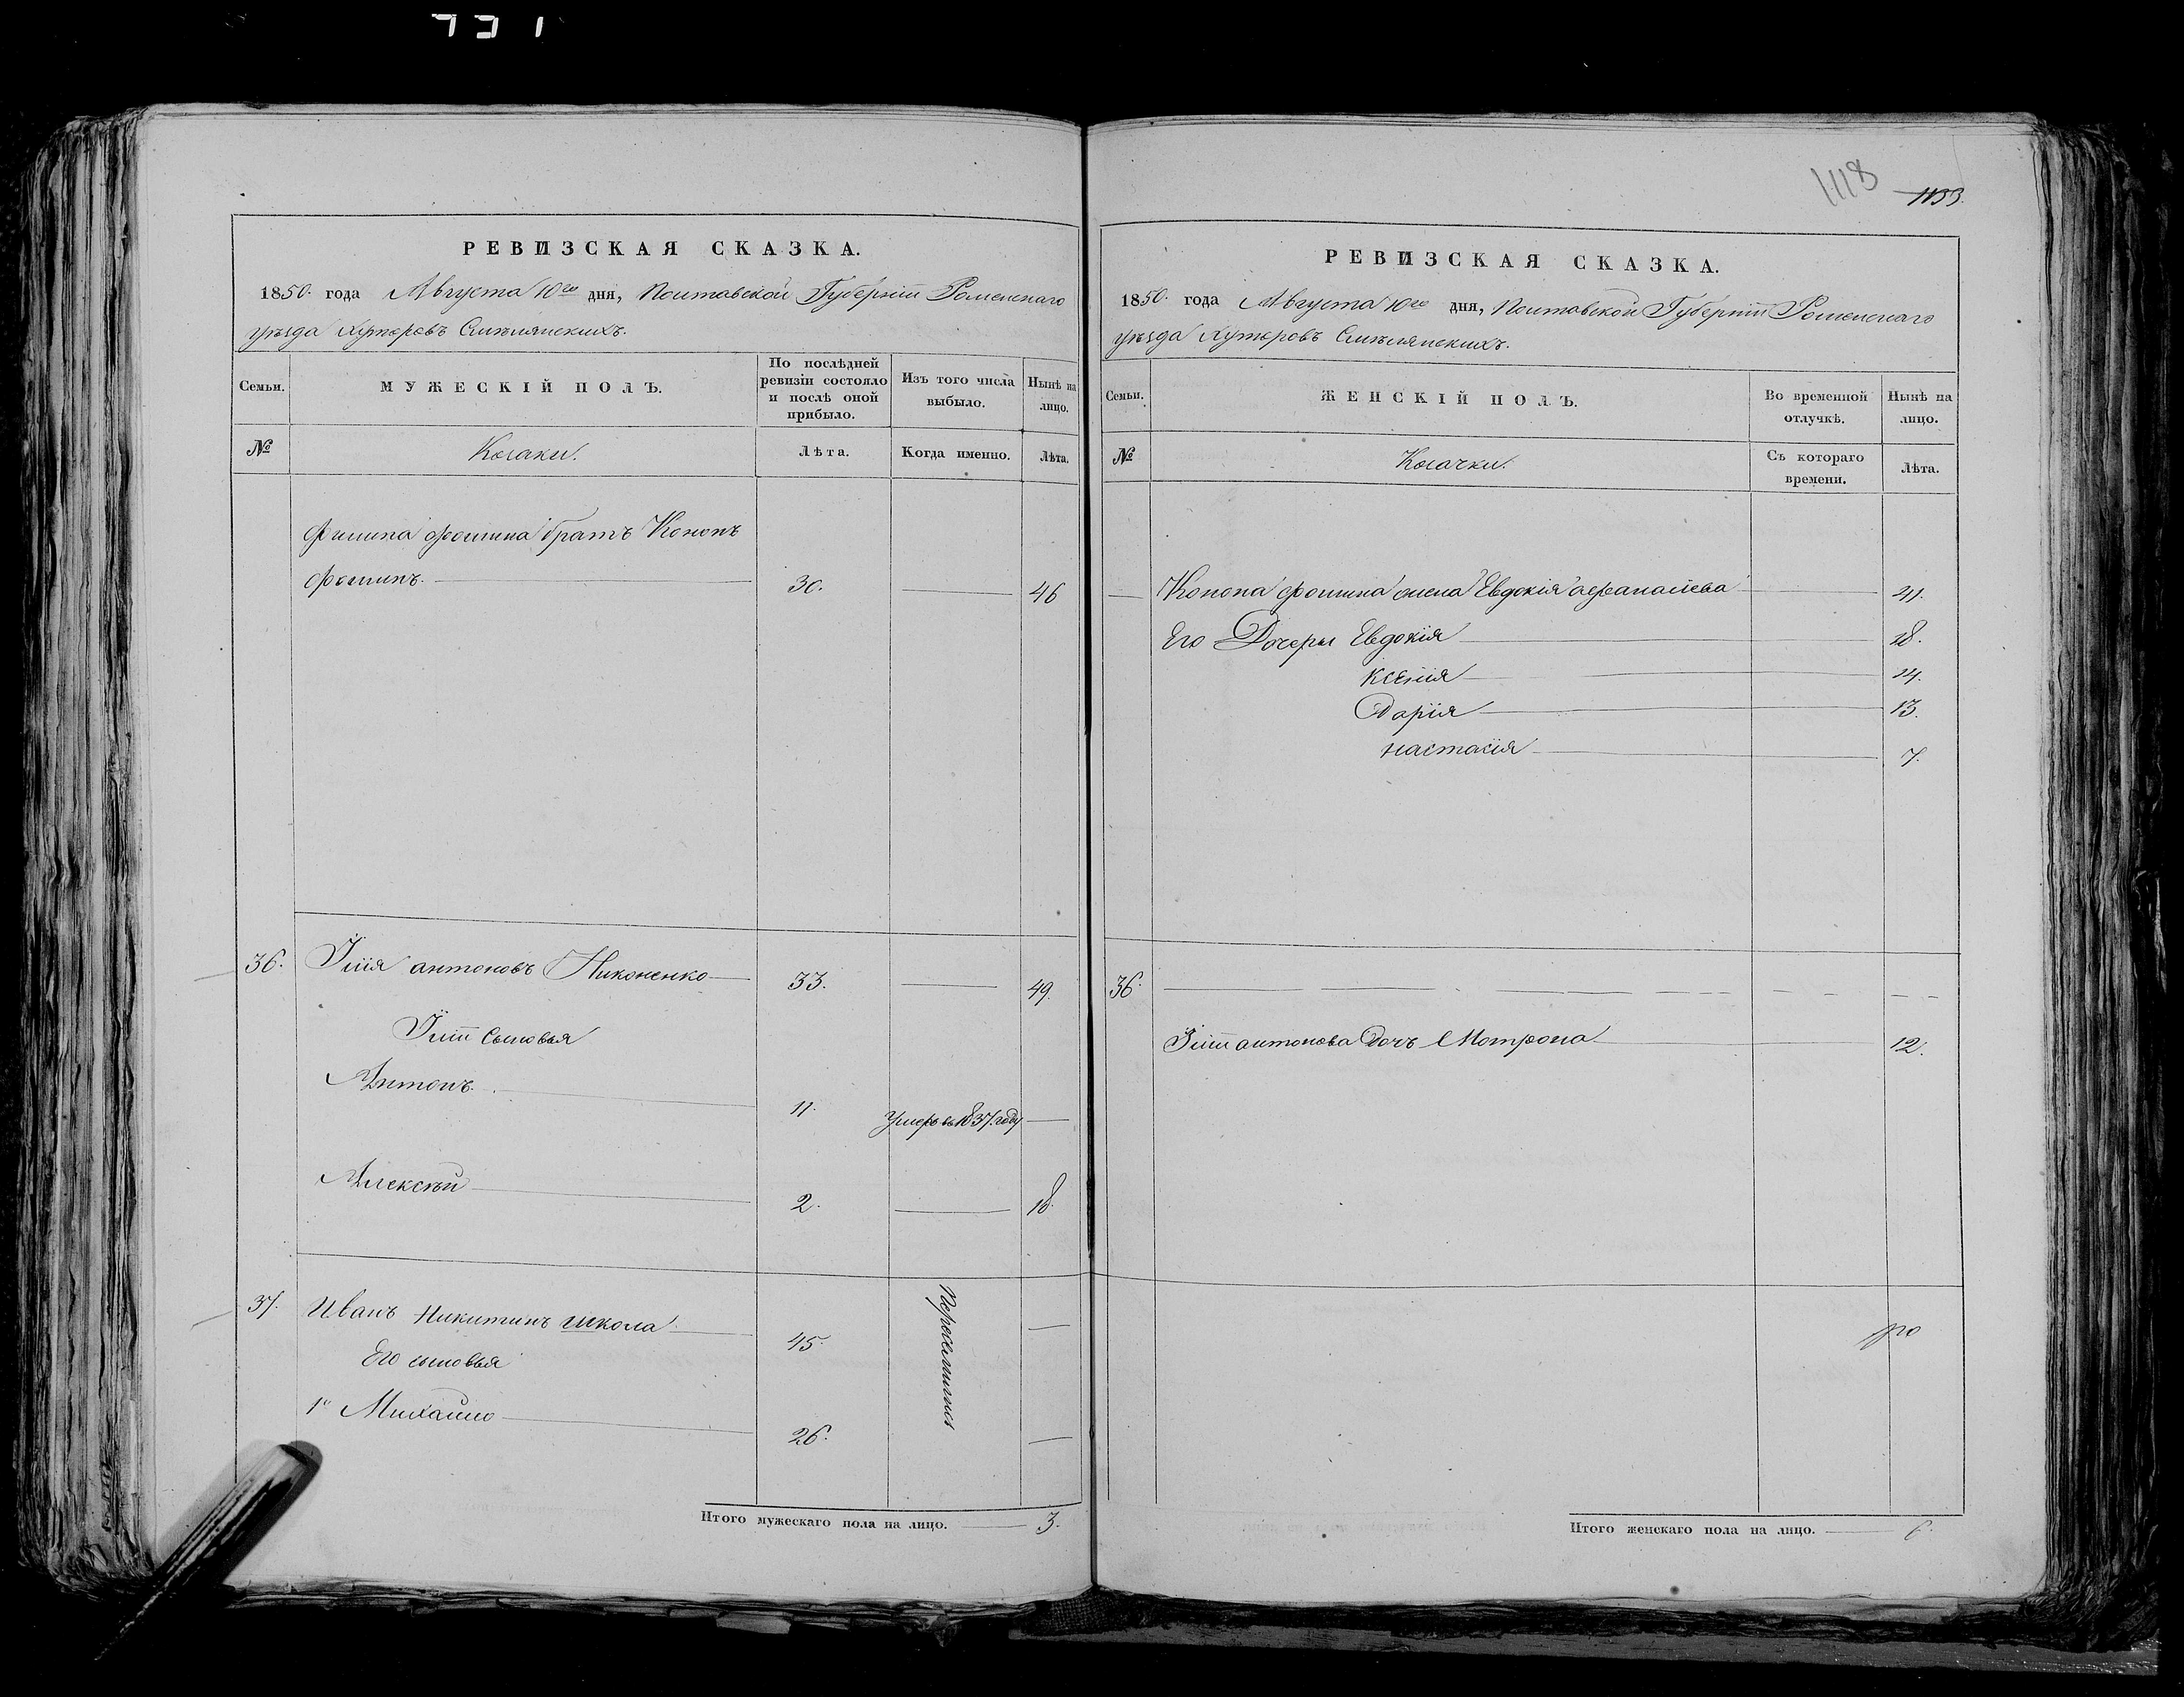 1118 1133.
РЕВИЗСКАЯ СКАЗКА.
1850. года Августа 10го дня, Полтавской Губерніи Роменскаго
уѣзда хуторовъ Смѣлянскихъ.
Семьи.
МУЖЕСКІЙ ПОЛЪ.
По послѣдней
ревизіи состояло
и послѣ оной
прибыло.
Изъ того числа
выбыло.
Нынѣ на
лицо.
№
Козаки.
Лѣта.
Когда именно.
Лѣта.
Филипа Фомина братъ Кононъ
Фоминъ. 30. 46
36. Илія антоновъ Никоненко 33. 49.
Иліи сыновья
Антонъ. 11. Умеръ въ 1837. году
Алексѣй 2. 18.
37. Иванъ Никитинъ Школа 45.
Его сыновья
1й Михайло 26.
Итого мужескаго пола на лицо. 3.
РЕВИЗСКАЯ СКАЗКА.
1850. года Августа 10го дня, Полтавской Губерніи Роменскаго
уѣзда хуторовъ Смѣлянскихъ.
Семьи.
ЖЕНСКІЙ ПОЛЪ.
Во временной
отлучкѣ.
Нынѣ на
лицо.
№
Козачки.
Съ котораго
времени.
Лѣта.
Конона Фомина жена Евдокія афанасіева 41.
Его Дочеры Евдокія 18.
Ксенія 14.
Дарія 13.
настасія 7.
36.
Иліи антонова Дочъ Мотрона 12.
Итого женскаго пола на лицо. 6.